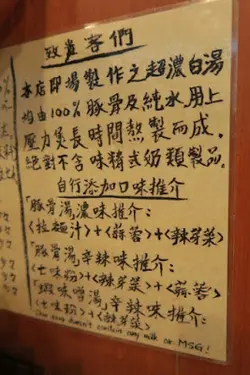 致貴客們
本店即場製作之超濃白湯
均由100%豚骨及純水,用上
壓力煲長時間熬製而成,
絕對不含味精或奶類製品。
自行添加口味推介
「豚骨湯」濃味推介:
<拉麵汁>+<蒜蓉>+<辣芽菜>
「豚骨湯」辛辣味推介:
<七味粉>+<辣芽菜>+<蒜蓉>
「蝦味噌湯」辛辣味推介:
<七味粉>+<辣芽菜>
Our soup doesn't contain any milk or MSG!